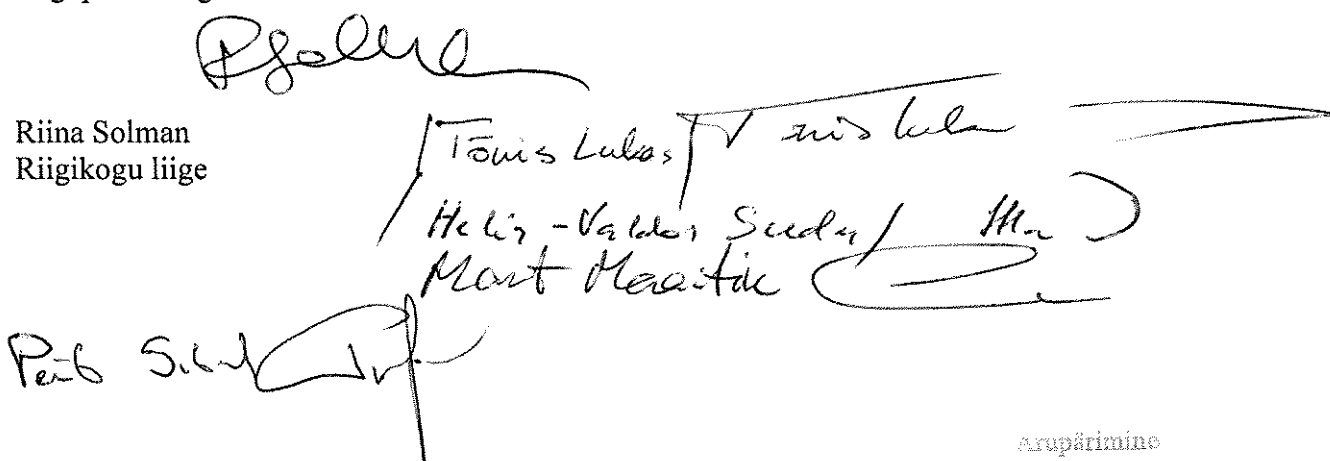 Riina Solman
Riigikogu liige
Tõnis Lukas Tõnis Lukas
Helir-Valdor Seeder
Mart Maastik
Priit Sibul
Arupärimine